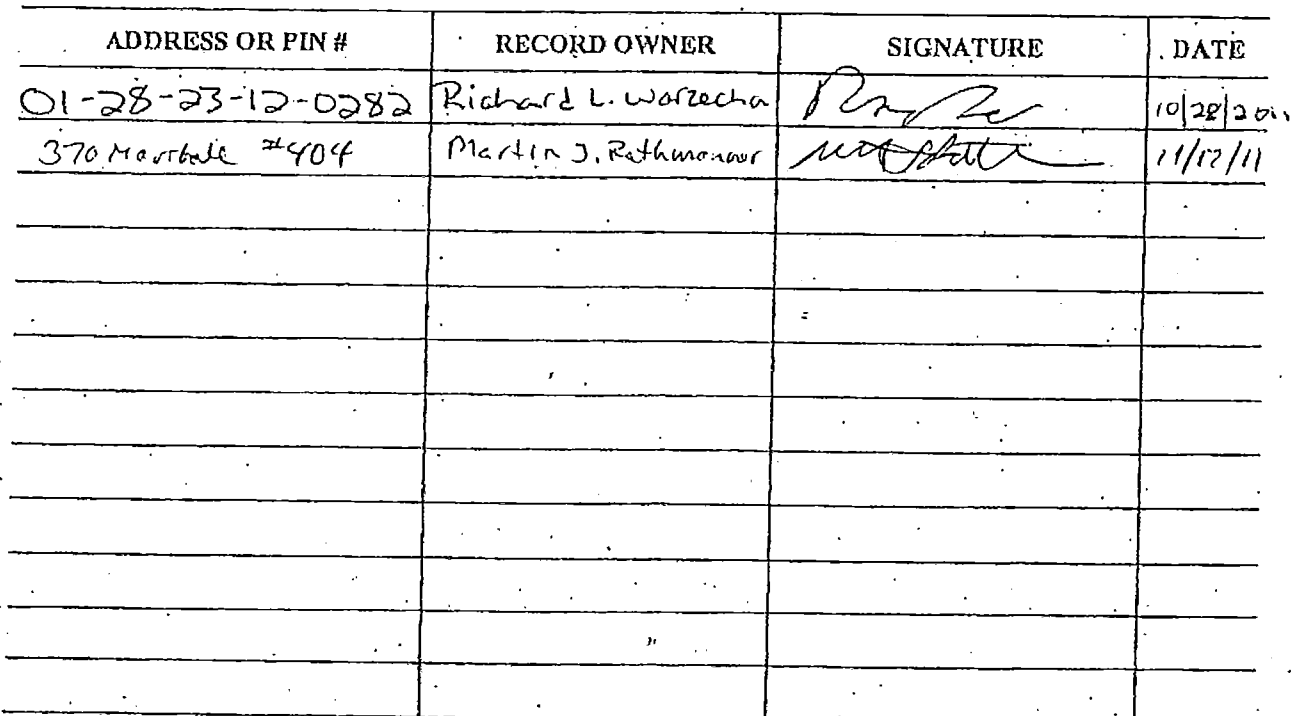 ADDRESS OR PIN # RECORD OWNER SIGNATURE DATE
01-28-23-12-0282 Richard L. Warzecha 10/28/2011
370 Marshall #404 Martin J. 11/17/11